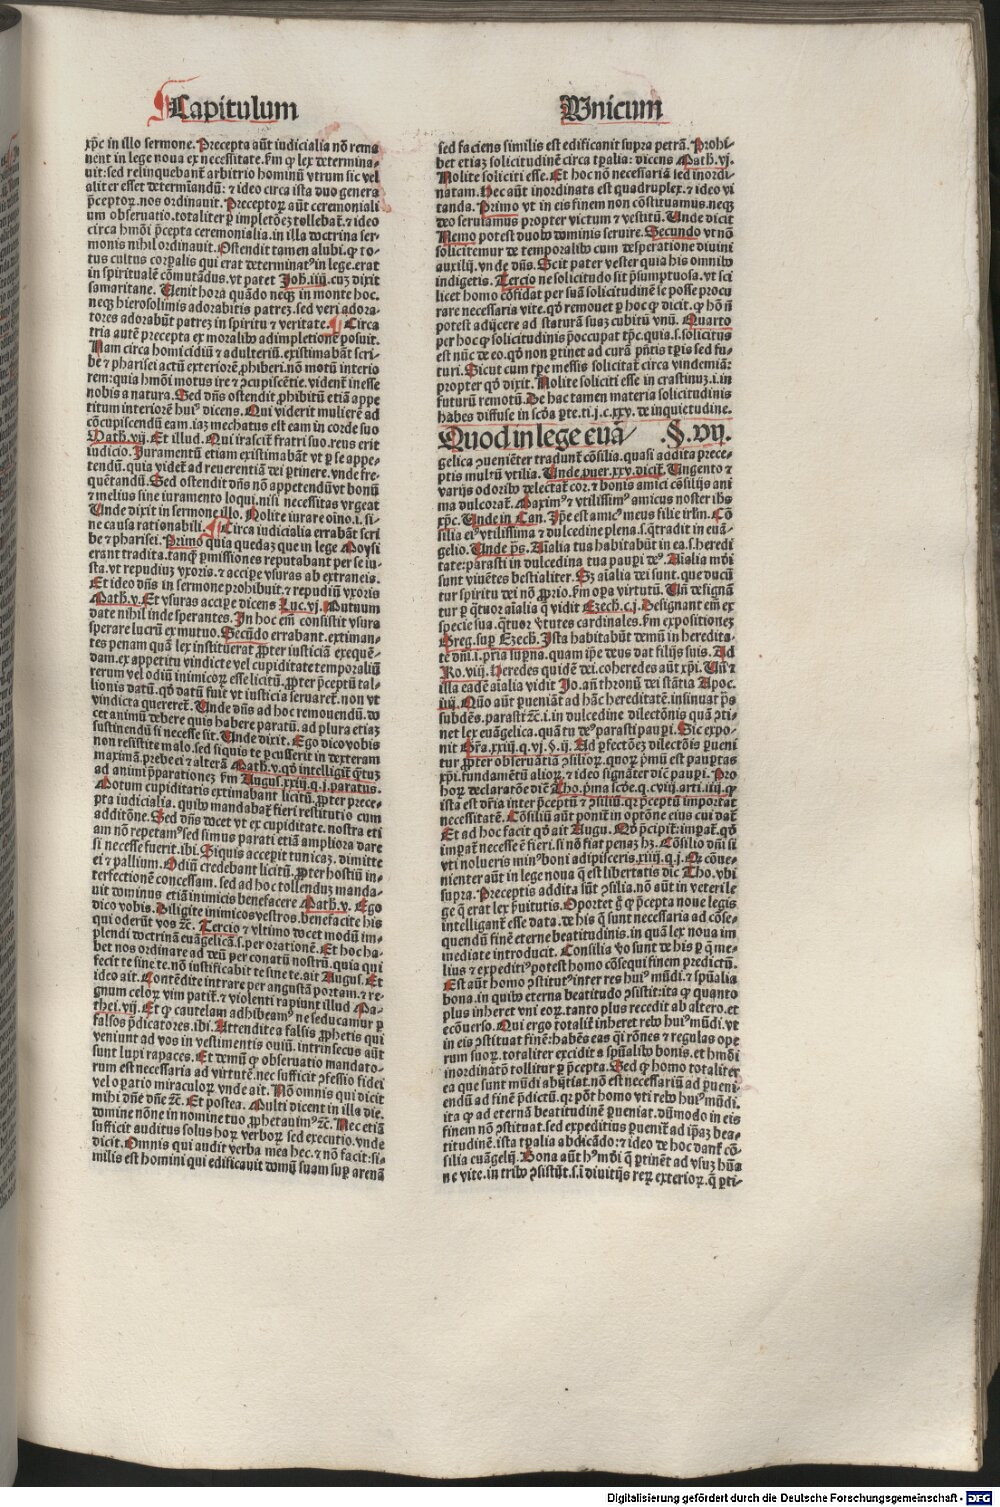 Capitulum
Unicum
xp̄c in illo sermone. Precepta aūt iudicialia nō rema
nent in lege noua ex necessitate. fm̄ ꝙ lex determina-
uit: sed relinquebant̄ arbitrio hominū vtrum sic vel
aliter esset determinandū: ⁊ ideo circa ista duo genera
p̄ceptoꝝ. nos ordinauit. Preceptoꝝ aūt ceremoniali
um obseruatio. totaliter p̱ impletōeꝫ tollebat̄. ⁊ ideo
circa hmōi p̄cepta ceremonialia. in illa doctrina ser-
monis nihil ordinauit. Ostendit tamen alubi. ꝙ to-
tus cultus corp̱alis qui erat determinatꝰ in lege. erat
in spiritualē cōmutādus. vt patet Joh. iiij. cuꝫ dixit
samaritane. Uenit hora quādo neqꝫ in monte hoc.
neqꝫ hierosolimis adorabitis patreꝫ. sed veri adora-
tores adorabūt patreꝫ in spiritu ⁊ veritate. ¶ Circa
tria autē precepta ex moralibꝰ adimpletionē posuit.
Nam circa homicidiū ⁊ adulteriū. existimabāt scri-
be ⁊ pharisei actū exteriorē ꝓhiberi. nō motū interio
rem: quia hmōi motus ire ⁊ ↄcupiscētie. vident̄ inesse
nobis a natura. Sed dn̄s ostendit ꝓhibitū etiā appe
titum interiorē huiꝰ dicens. Qui viderit mulierē ad
cōcupiscendū eam. iaꝫ mechatus est eam in corde suo
Math. vij. Et illud. Qui irascit̄ fratri suo. reus erit
iudicio. Juramentū etiam existimabāt vt p̱ se appe-
tendū. quia videt̄ ad reuerentiā dei p̱tinere. vnde fre-
quētandū. Sed ostendit dn̄s nō appetendū vt bonū
⁊ melius sine iuramento loqui. nisi necessitas vrgeat
Unde dixit in sermone illo. Nolite iurare oīno. i. si-
ne causa rationabili. ¶ Circa iudicialia errabāt scri
be ⁊ pharisei. Primo quia quedaꝫ que in lege Moysi
erant tradita. tanꝙ p̱missiones reputabant per se iu-
sta. vt repudiuꝫ vxoris. ⁊ accipe vsuras ab extraneis.
Et ideo dn̄s in sermone prohibuit. ⁊ repudiū vxoris
Math. v. Et vsuras accip̱e dicens Luc. vj. Mutuum
date nihil inde sperantes. In hoc em̄ consistit vsura
sperare lucrū ex mutuo. Secūdo errabant. extiman-
tes penam quā lex instituerat ꝓpter iusticiā exequē-
dam. ex appetitu vindicte vel cupiditate temporaliū
rerum vel odiū inimicoꝝ esse licitū. ꝓpter p̄ceptū tal-
lionis datū. qd̄ datū fuit vt iusticia seruaret̄. non vt
vindicta quereret̄. Unde dn̄s ad hoc remouendū. do
cet animū debere quis habere paratū. ad plura etiaꝫ
sustinendū si necesse sit. Unde dixit. Ego dico vobis
non resistite malo. sed siquis te p̱cusserit in dexteram
maxillā. prebe ei ⁊ alterā Math. v. qd̄ intelligit̄ qͣꝫtuꝫ
ad animi p̄parationeꝫ fm̄ Augus. xxiij. q. j. paratus.
Motum cupiditatis extimabant licitū. ꝓpter prece-
pta iudicialia. quibꝰ mandabat̄ fieri restitutio cum
additōne. Sed dn̄s docet vt ex cupiditate. nostra eti
am nō repetamꝰ sed simus parati etiā ampliora dare
si necesse fuerit. ibi. Siquis acceperit tunicaꝫ. dimitte
ei ⁊ pallium. Odiū credebant licitū. ꝓpter hostiū in-
terfectionē concessam. sed ad hoc tollenduꝫ manda-
uit dominus etiā inimicis benefacere Math. v. Ego
dico vobis. Diligite inimicos vestros. benefacite his
qui oderūt vos ⁊c̄. Tercio ⁊ vltimo docet modū im-
plendi doctrinā euāgelicā. s. per orationē. Et hoc ha-
bet nos ordinare ad deū per conatū nostrū. quia qui
fecit te sine te. nō iustificabit te sine te. ait Augus. Et
ideo ait. Contēdite intrare per angustā portam. ⁊ re-
gnum celoꝝ vim patit̄. ⁊ violenti rapiunt illud Ma-
thei. vij. Et ꝙ cautelam adhibeamꝰ ne seducamur p̱
falsos p̄dicatores. ibi. Attendite a falsis ꝓphetis qui
veniunt ad vos in vestimentis ouiū. intrinsecus aūt
sunt lupi rapaces. Et demū ꝙ obseruatio mandato-
rum est necessaria ad virtutē. nec sufficit ↄfessio fidei
vel oꝑatio miraculoꝝ. vnde ait. Nō omnis qui dicit
mihi dn̄e dn̄e ⁊c̄. Et postea. Multi dicent in illa die.
domine nōne in nomine tuo ꝓphetauimꝰ ⁊c̄. Nec etiā
sufficit auditus solus hoꝝ verboꝝ. sed executio. vnde
dicit. Omnis qui audit verba mea hec. ⁊ nō facit: si-
milis est homini qui edificauit domū suam sup̱ arenā
sed faciens similis est edificanti supra petrā. Prohi-
bet etiaꝫ solicitudinē circa tp̱alia: dicens Math. vj.
Nolite soliciti esse. Et hoc nō necessariā sed inordi-
natam. Hec aūt inordinata est quadruplex. ⁊ ideo vi
tanda. Primo vt in eis finem non cōstituamus. neqꝫ
deo seruiamus propter victum ⁊ vestitū. Unde dicit
Nemo potest duobꝰ dominis seruire. Secundo vt nō
solicitemur de temporalibꝰ cum desperatione diuini
auxilij. vnde dn̄s. Scit pater vester quia his omnibꝰ
indigetis. Tercio ne solicitudo sit p̄sumptuosa. vt sci
licet homo cōfidat per suā solicitudinē se posse procu
rare necessaria vite. qd̄ remouet p̱ hoc ꝙ dicit. ꝙ hō n̄
potest adijcere ad staturā suaꝫ cubitū vnū. Quarto
per hoc ꝙ solicitudinis p̄occupat tp̱c. quia. s. solicitus
est nūc de eo. qd̄ non p̱tinet ad curā p̄ntis tp̱is sed fu-
turi. Sicut cum tp̱e messis solicitat̄ circa vindemiā:
propter qd̄ dixit. Nolite soliciti esse in crastinuꝫ. i. in
futurū remotū. De hac tamen materia solicitudinis
habes diffuse in scd̄a p̱te. ti. j. c. xxv. de inquietudine.
Quod in lege euā .§. vij.
gelica ↄueniēter tradunt̄ cōsilia. quasi addita prece-
ptis multū vtilia. Unde ꝓuer. xxv. dicit̄. Ungento ⁊
varijs odoribꝰ delectat̄ cor. ⁊ bonis amici cōsilijs ani
ma dulcorat̄. Maximꝰ ⁊ vtilissimꝰ amicus noster ihs
xp̄c. Unde in Can. Ip̄e est amicꝰ meus filie irlm̄. Cō
silia eiꝰ vtilissima ⁊ dulcedine plena. s. q̄ tradit in euā-
gelio. Unde p̄s. Aīalia tua habitabūt in ea. s. heredi
tate: parasti in dulcedina tua paupi deꝰ. Aīalia mōi
sunt viuētes bestialiter. Sꝫ aīalia dei sunt. que ducū
tur spiritu dei nō ꝓprio. fm̄ oꝑa virtutū. Uñ designā
tur p̱ qͣtuor aīalia q̄ vidit Ezech. c. j. Designant em̄ ex
specie sua. qͣtuor v̄tutes cardinales. fm̄ expositioneꝫ
Greg. sup̱ Ezech. Ista habitabūt demū in heredita-
te dn̄i. i. pria sup̱na. quam ip̄e deus dat filijs suis. Ad
Ro. viij. Heredes quidē dei. coheredes aūt xp̄i. Uñ ⁊
illa eadē aīalia vidit Jo. añ thronū dei stātia Apoc.
iiij. Quō aūt ꝑueniāt ad hāc hereditatē. insinuat p̄s
subdēs. parasti ⁊c̄. i. in dulcedine dilectōnis quā ↄti-
net lex euāgelica. quā tu deꝰ parasti pauꝑi. Sic expo-
nit Gra. xxiij. q. vj. §. ij. Ad ꝑfectōeꝫ dilectōis ꝑueni
tur ꝓpter obseruātiā ↄsilioꝝ. quoꝝ ṗmū est pauꝑtas
xp̄i. fundamētū alioꝝ. ⁊ ideo signāter dic̄ pauꝑi. Pro
hoꝝ declaratōe dic̄ Tho. pͥma scd̄e. q. cviij. arti. iiij. ꝙ
ista est dr̄ia inter p̄ceptū ⁊ ↄsiliū. qꝛ p̄ceptū importat
necessitatē. Cōsiliū aūt ponit̄ in optōne eius cui dat̄
Et ad hoc facit qd̄ ait Augu. Qd̄ p̄cipit̄: imꝑat̄. qd̄
imꝑat̄ necesse ē fieri. si nō fiat penaꝫ hꝫ. Cōsilio dn̄i si
vti nolueris minꝰ boni adipisceris. xiiij. q. j. Et cōue-
nienter aūt in lege noua q̄ est libertatis dic̄ Tho. vbi
supra. Preceptis addita sūt ↄsilia. nō aūt in veteri le
ge q̄ erat lex ẜuitutis. Oportet g̊ ꝙ p̄cepta noue legis
intelligant̄ esse data. de his q̄ sunt necessaria ad cōse-
quendū finē eterne beatitudinis. in quā lex noua im
mediate introducit. Consilia v̊o sunt de his p̱ q̄ me-
lius ⁊ expeditiꝰ potest homo cōsequi finem predictū.
Est aūt homo ↄstitutꝰ inter res huiꝰ mūdi. ⁊ spūalia
bona. in quibꝰ eterna beatitudo ↄsistit: ita ꝙ quanto
plus inheret vni eoꝝ. tanto plus recedit ab altero. et
ecōuerso. Qui ergo totalit̄ inheret rebꝰ huiꝰ mūdi. vt
in eis ↄstituat finē: habēs eas q̄si rōnes ⁊ regulas ope
rum suoꝝ. totaliter excidit a spūalibꝰ bonis. et hmōi
inordinatō tollitur p̱ p̄cepta. Sed ꝙ homo totaliter
ea que sunt mūdi abijciat. nō est necessariū ad ꝑueni-
endū ad finē p̄dictū. qꝛ pōt homo vti rebꝰ huiꝰ mūdi.
ita ꝙ ad eternā beatitudinē ꝑueniat. dūmodo in eis
finem nō ↄstituat. sed expeditius ꝑueniet̄ ad ip̄aꝫ bea-
titudinē. ista tp̱alia abdicādo: ⁊ ideo de hoc dant̄ cō-
silia euāgelij. Bona aūt hꝰ mōdi q̄ ꝑtinēt ad vsuꝫ hūa
ne vite. in tribꝰ ↄsistūt. s. i diuitijs reꝝ exterioꝝ. q̄ ꝑti-
Digitalisierung gefördert durch die Deutsche Forschungsgemeinschaft - DFG